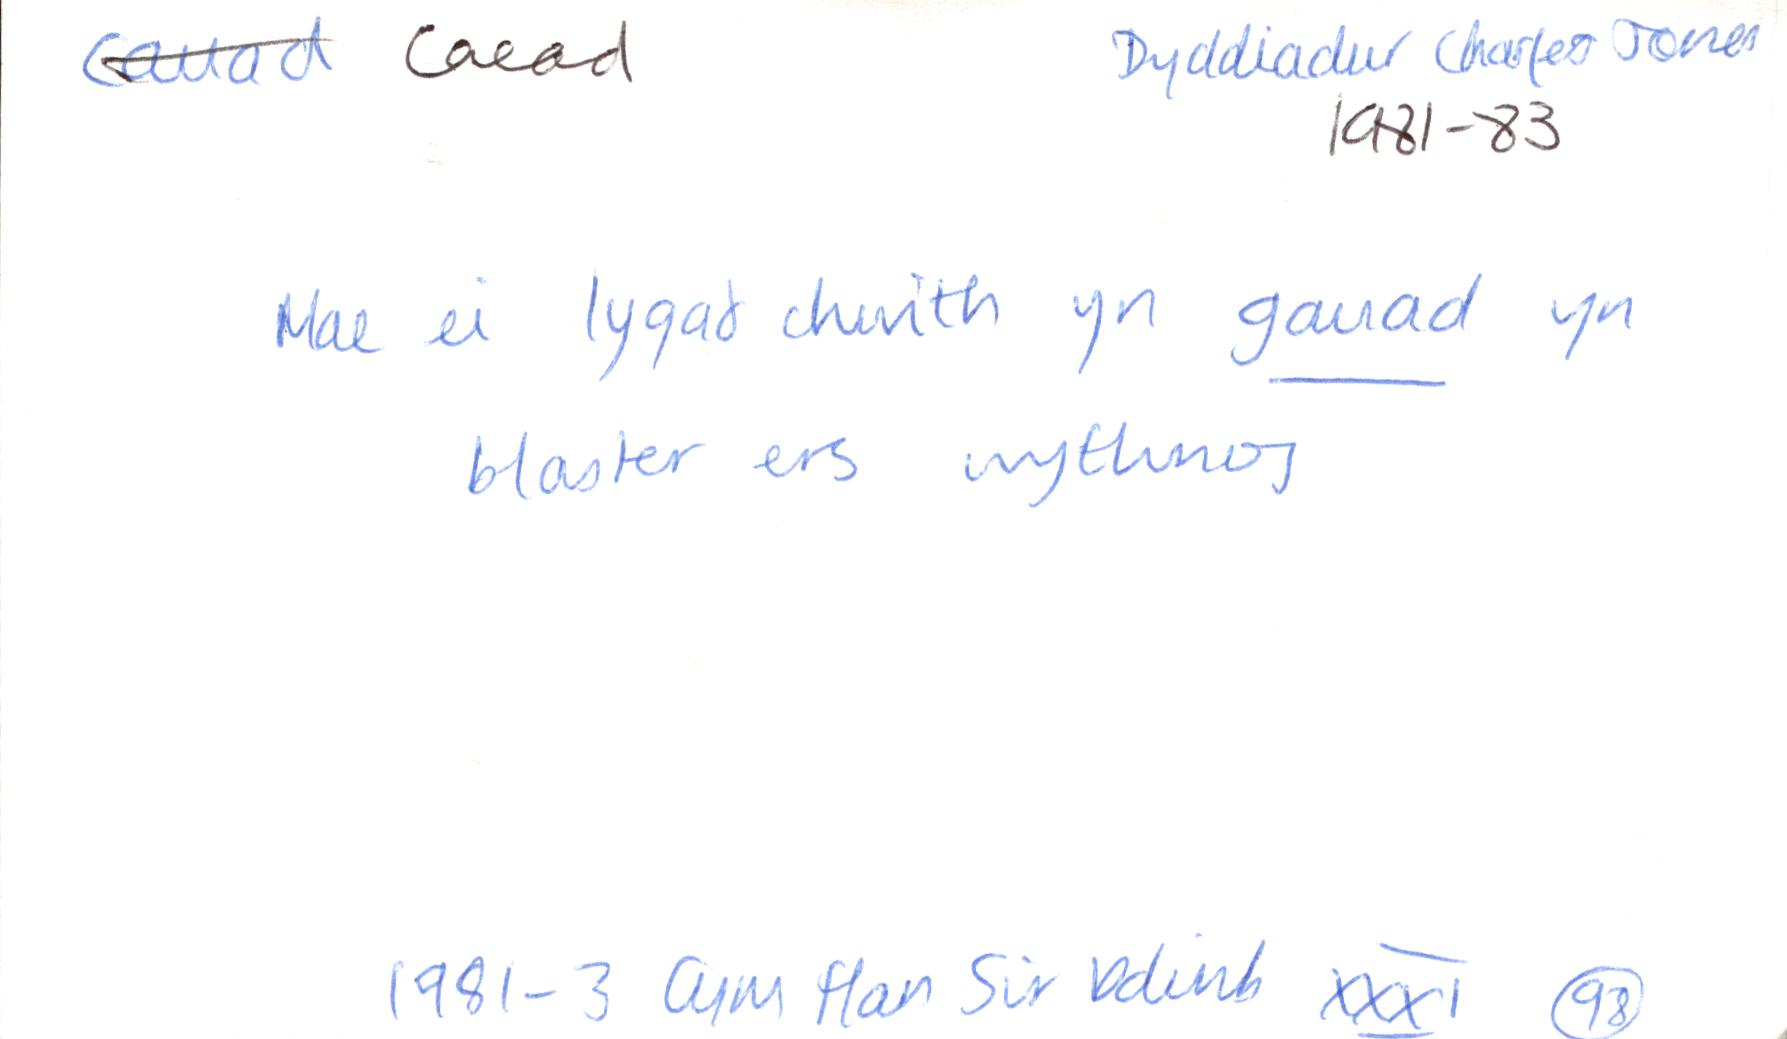 Cauad Caead Dyddiadur Charles Jones
1981-83
Mae ei lygad chwith yn gauad yn
blaster ers wythnos
1981-3 Cym Han Sir Ddinb XXXI 98